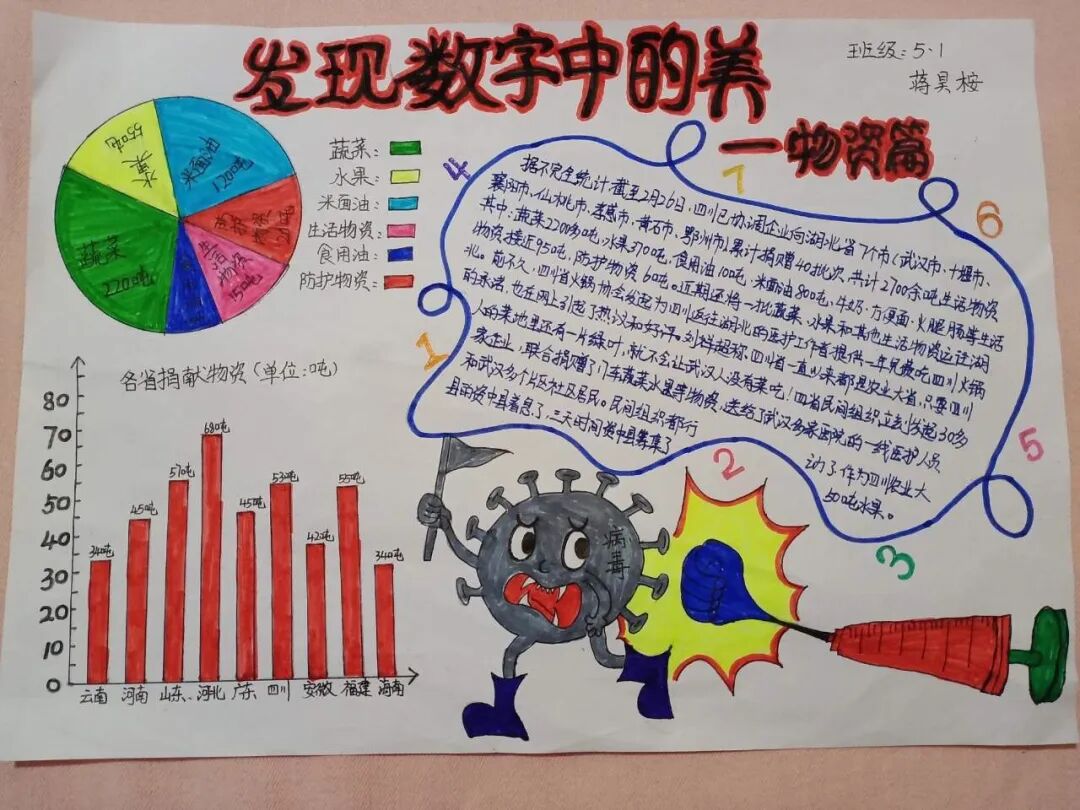 发现数字中的美
班级:5.1
蒋昊桉
一物资篇
水果
550吨
米面油
1200吨
蔬菜
2200吨
生活物资
150吨
蔬菜:
水果:
米面油:
生活物资:
食用油:
防护物资:
4
7
6
1
5
2
3
据不完全统计截至2月26日,四川已协调企业向湖北省7个市(武汉市、十堰市、
襄阳市、仙桃市、孝感市、黄石市、鄂州市)累计捐赠40批次,共计2700余吨生活物资
其中:蔬菜2200多吨,水果370吨,食用油10吨,米面油800吨,牛奶.方便面.火腿肠等生活
物资接近950吨,防护物资60吨。近期还将一批蔬菜、水果和其他生活物资运往湖
北。前不久,四川省火锅协会发起为四川返往湖北的医护工作者提供一年免费吃四川火锅
的承诺,也在网上引起了热议和好评。刘梓超称:四川省一直以来都是农业大省,只要四川
人的菜地里还有一片绿叶,就不会让武汉人没有菜吃!四省民间组织立刻发起30多
家企业,联合捐赠了八车蔬菜水果等物资,送给了武汉多家医院的一线医护人员
和武汉多个片区社区居民。民间组织都行动了作为四川农业大
县的资中县着急了,三天时间资中县筹集了50吨水果。
各省捐献物资(单位:吨)
80
70
60
50
40
30
20
10
0
340吨
450吨
570吨
680吨
450吨
530吨
420吨
55吨
340吨
云南
河南
山东
河北
广东
四川
安徽
福建
海南
病毒